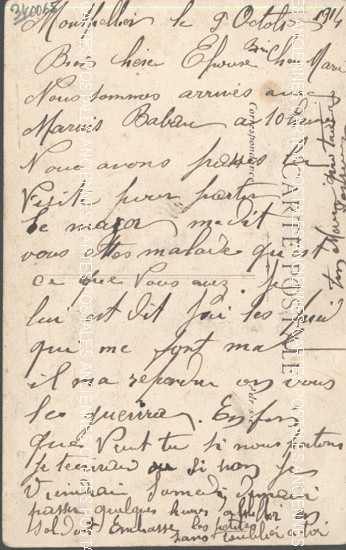 340065
Montpellier le 9 Octobre 1914
Bien chère Epouse Bien cher Marius
Nous sommes arrivés avec
Marius Baban a 10 heures
Nous avons passés la
Visite pour partir
le major ma dit
vous ettes malade qu'est
ce que vous avez. Je
lui est dit j'ai les pieds
qui me font mal
il ma repondu on vous
les guerira. Enfin
que veut tu si nous partons
je tecrirai ou si non je
Viendrai Samedi Dimanche
passer quelques heures
Embrasse les petites
sans toublier
CARTE POSTALE
Correspondance
Ton Mari que taime